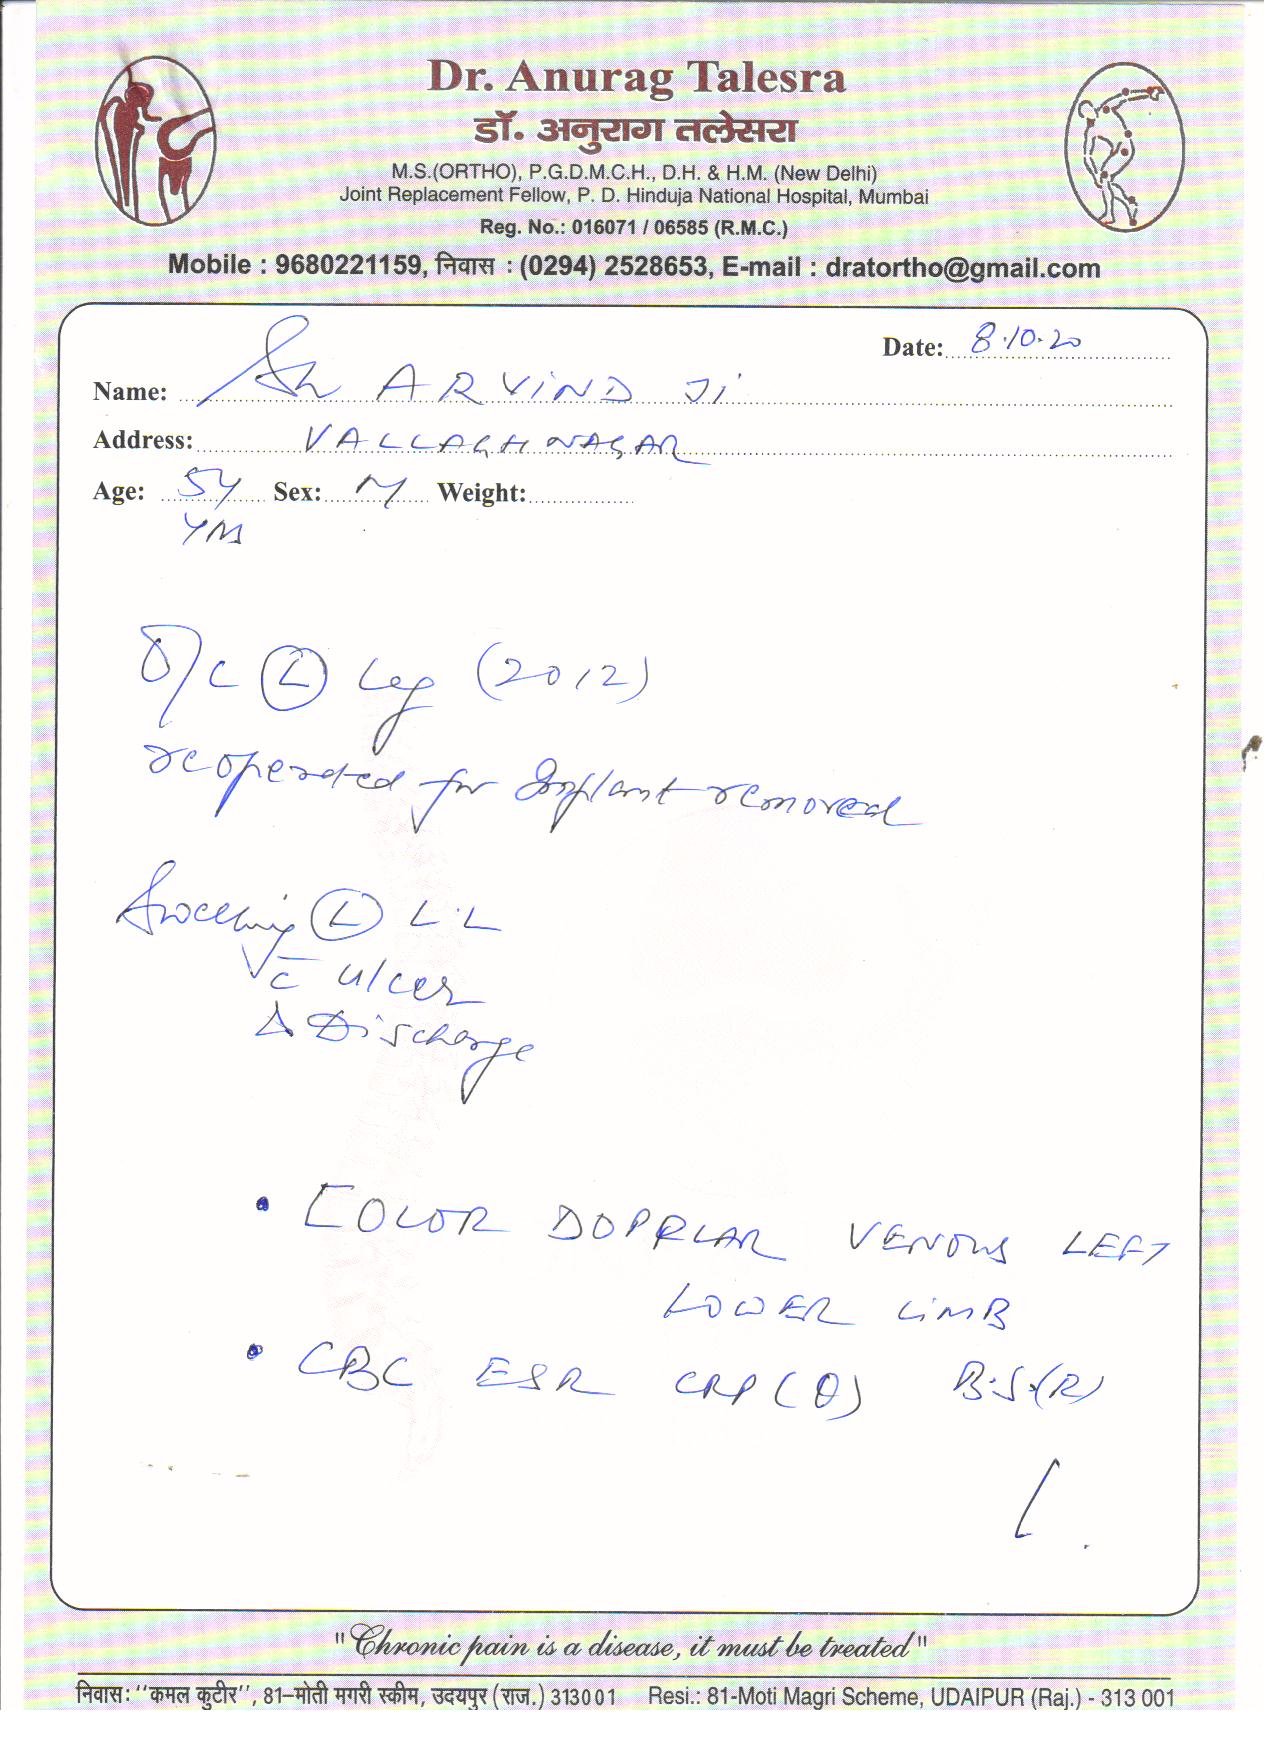 Dr. Anurag Talesra
डॉ. अनुराग तलेसरा
M.S.(ORTHO), P.G.D.M.C.H., D.H. & H.M. (New Delhi)
Joint Replacement Fellow, P. D. Hinduja National Hospital, Mumbai
Reg. No.: 016071 / 06585 (R.M.C.)
Mobile : 9680221159, निवास : (0294) 2528653, E-mail : dratortho@gmail.com
Date: 8.10.20
Name: Sh ARVIND Ji
Address: VALLAGHNAGAR
Age: 54 Sex: M Weight:
/C (L) Leg (2012)
reoperated for Implant removed
Swelling (L) L.L
c̄ ulcer
Discharge
• COLOR DOPPLAR VENOUS LEFT
LOWER LIMB
• CBC ESR CRP (Q) B.S.(R)
"Chronic pain is a disease, it must be treated"
निवास: ''कमल कुटीर'', 81–मोती मगरी स्कीम, उदयपुर (राज.) 313001 Resi.: 81-Moti Magri Scheme, UDAIPUR (Raj.) - 313 001